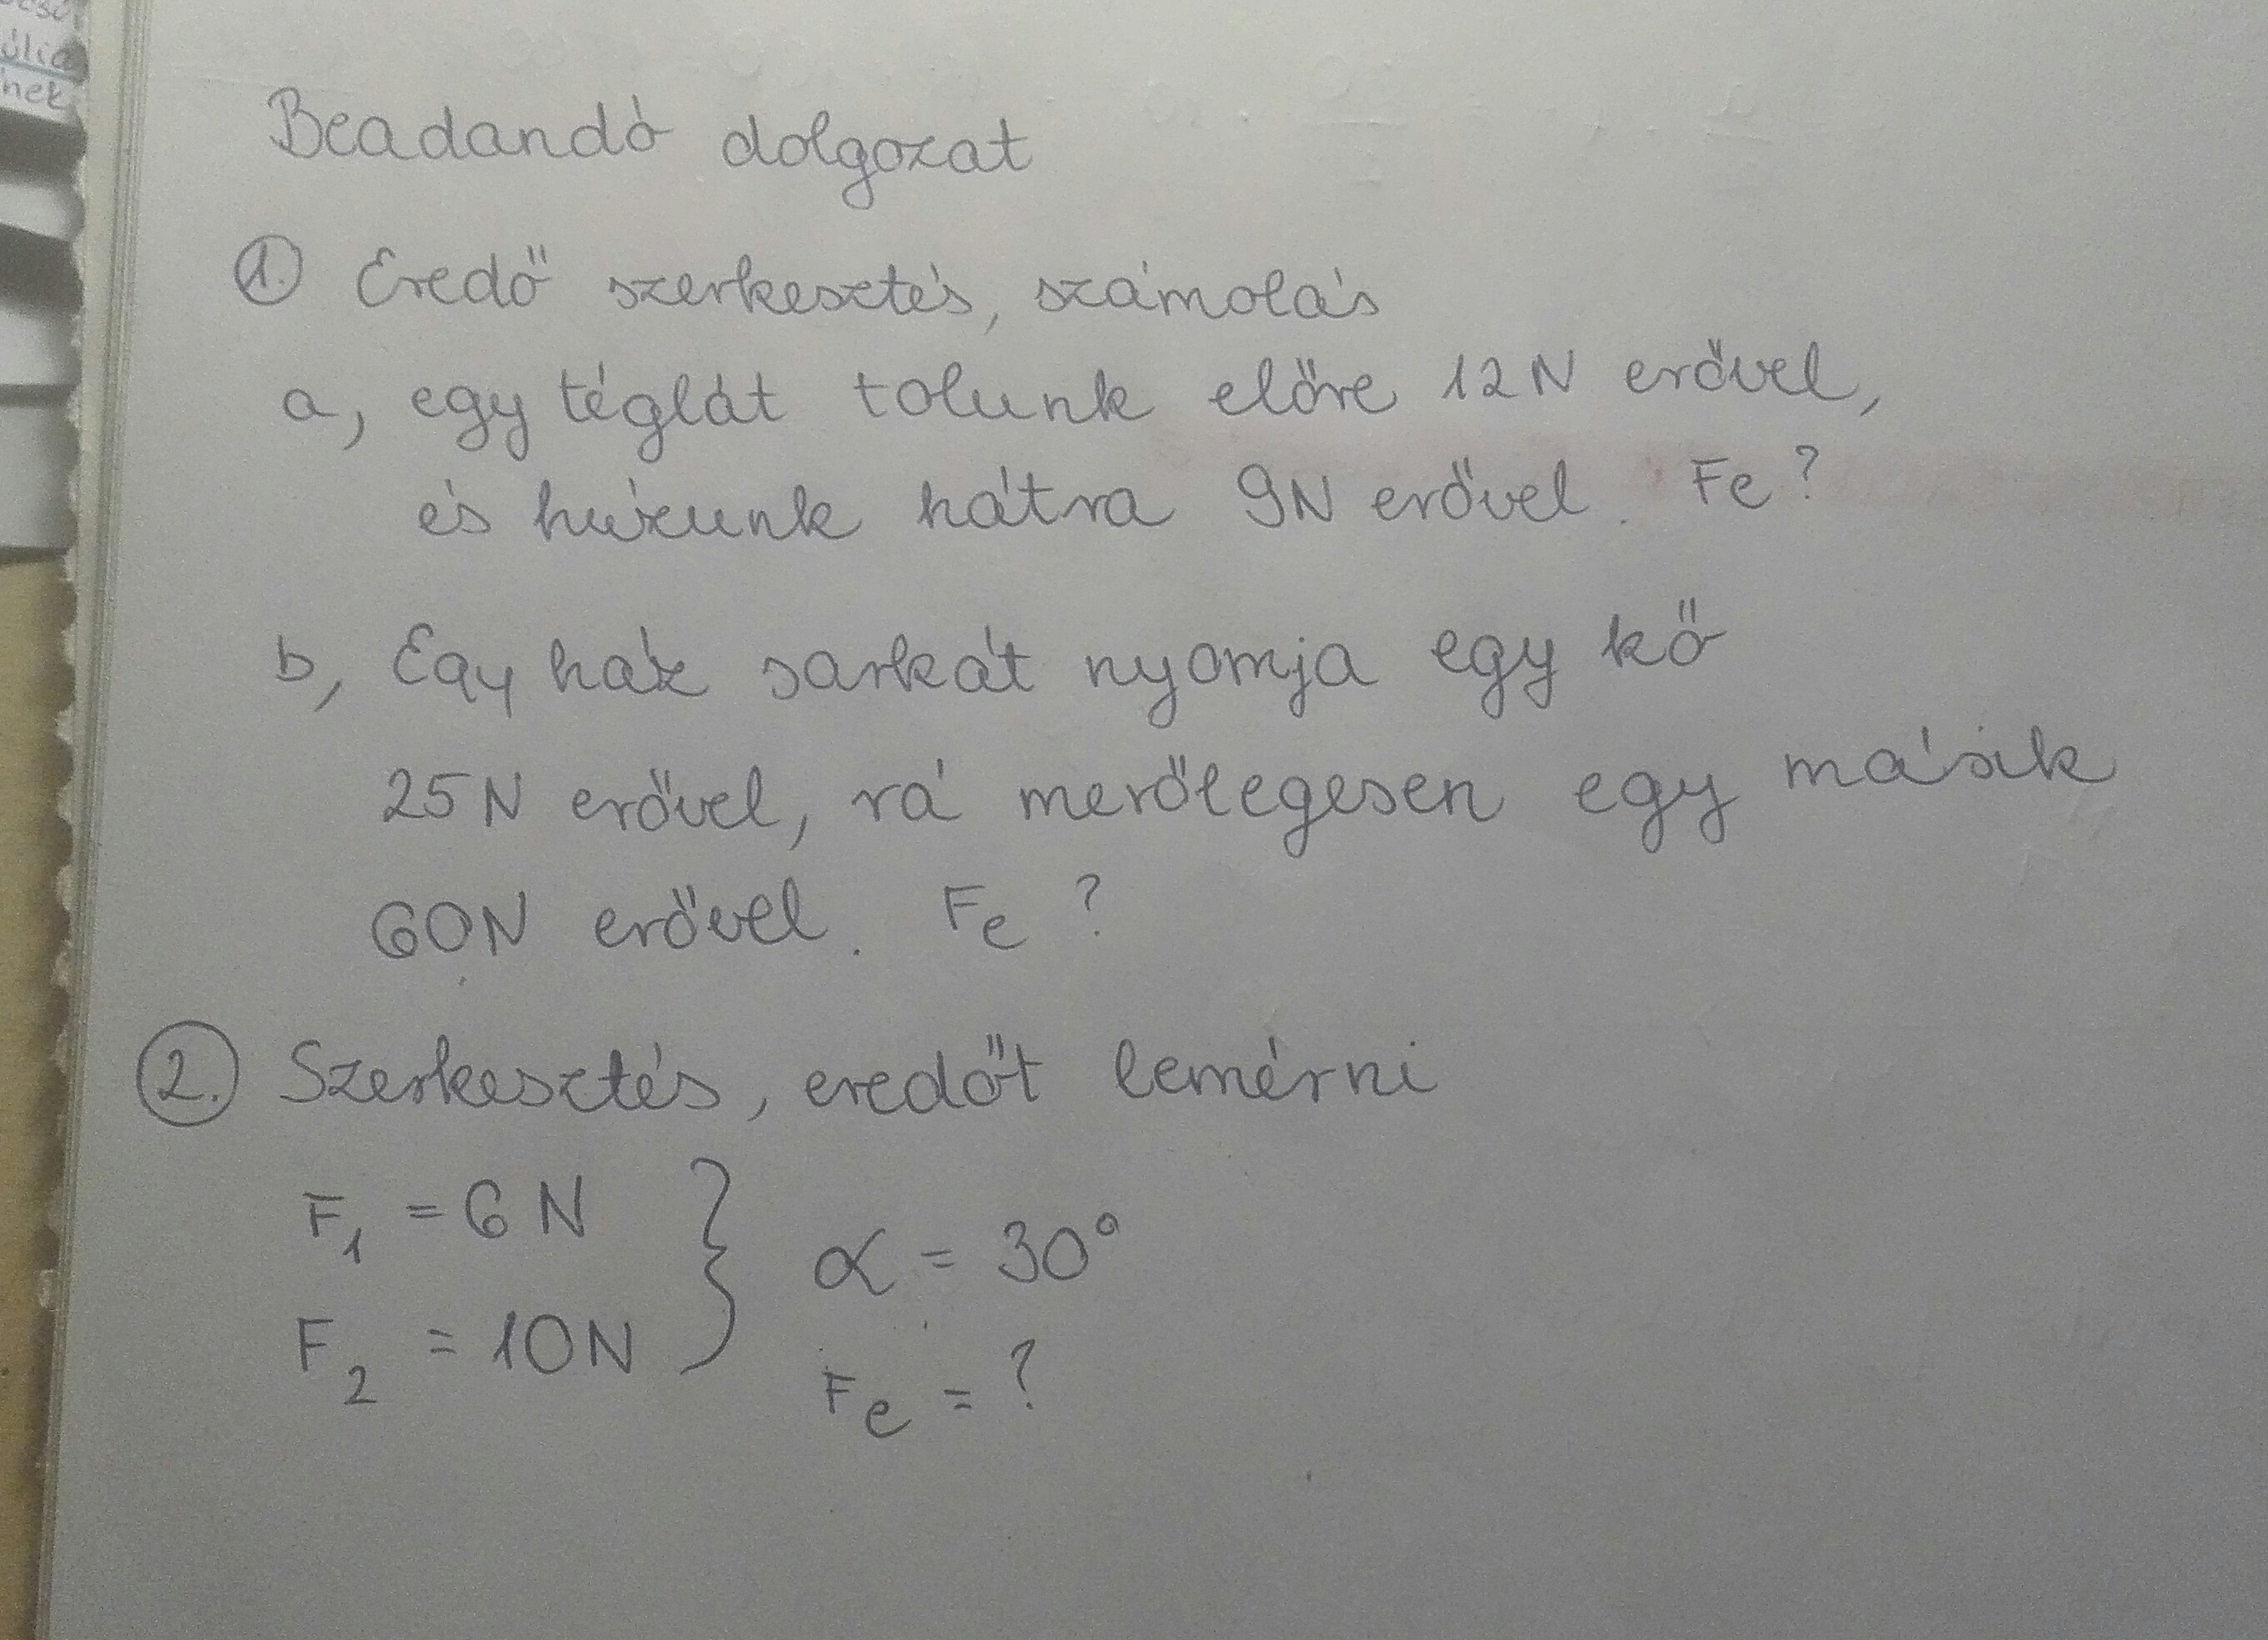 Beadandó dolgozat
1. Eredő szerkesztés, számolás
a, egy téglát tolunk előre 12N erővel,
és húzunk hátra 9N erővel. Fe?
b, Egy ház sarkát nyomja egy kő
25N erővel, rá merőlegesen egy másik
60N erővel. Fe ?
2. Szerkesztés, eredőt lemérni
F1 = 6 N
F2 = 10N
} α = 30°
Fe = ?